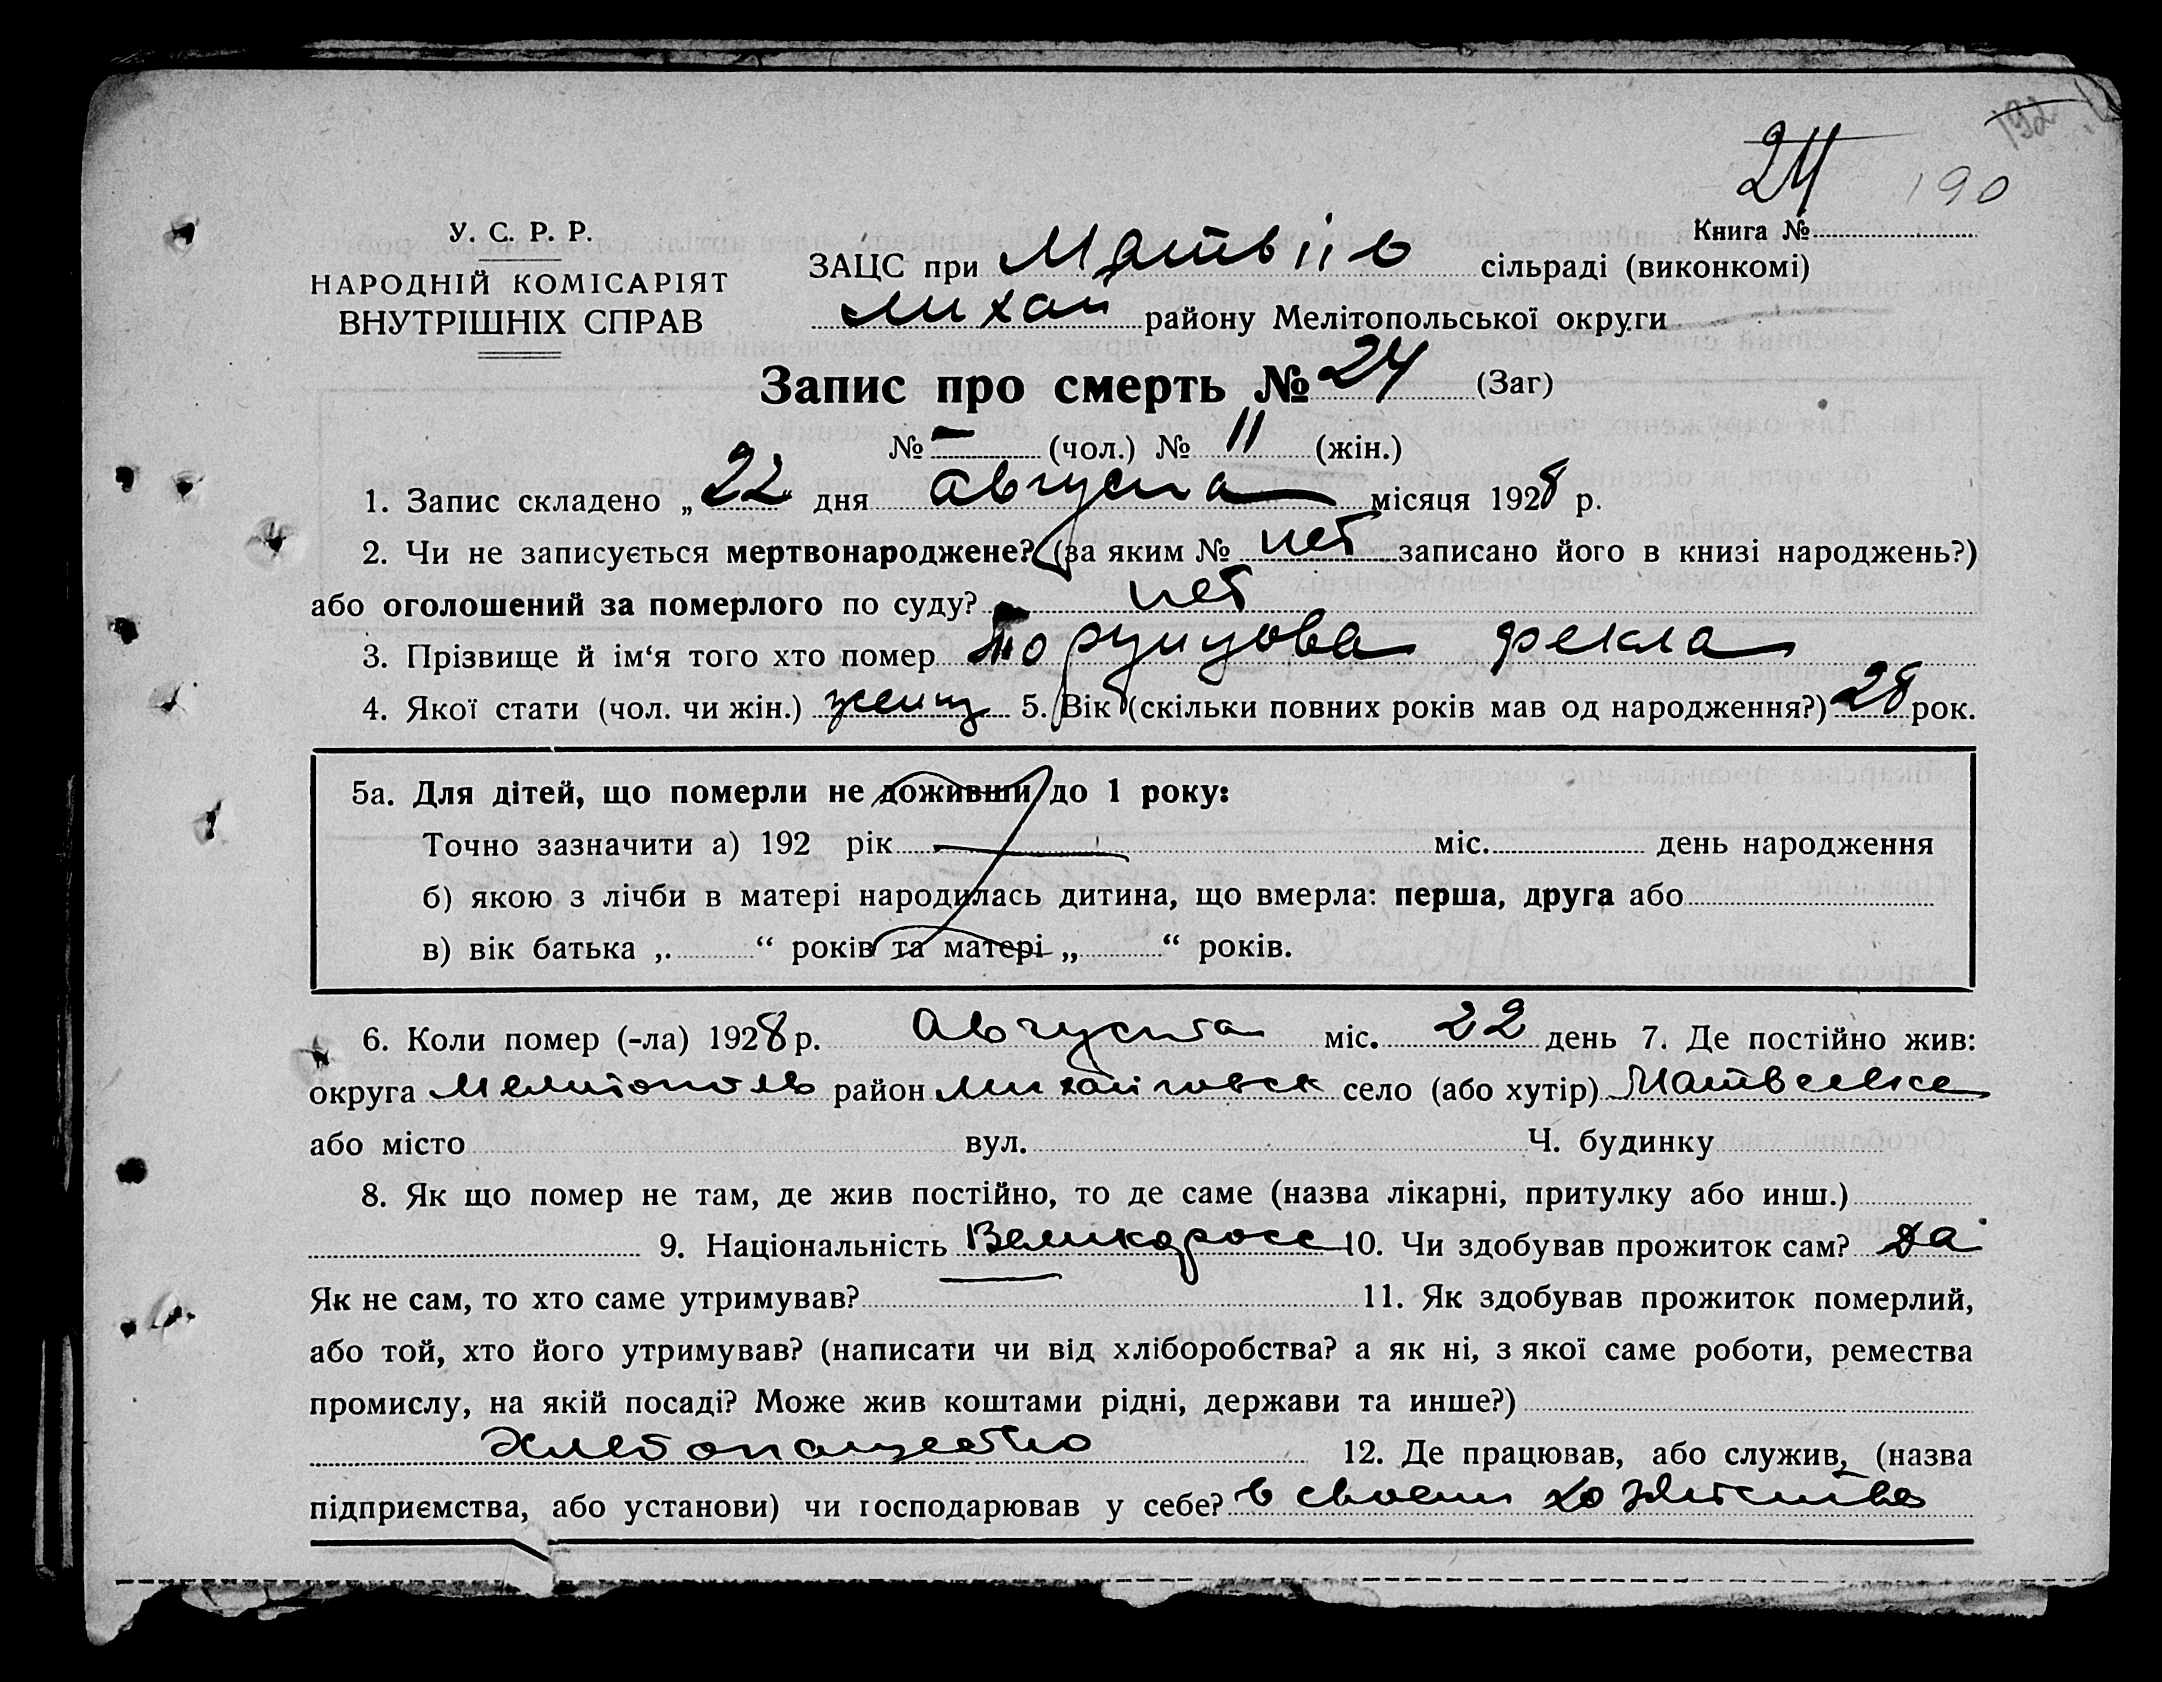 24 190
У. С. Р. Р.
НАРОДНІЙ КОМІСАРІЯТ
ВНУТРІШНІХ СПРАВ
Книга №
ЗАЦС при Матвіів сільраді (виконкомі)
Михай району Мелітопольської округи
Запис про смерть № 24 (Заг)
№ — (чол.) № 11 (жін.)
1. Запис складено „ 22 дня августа місяця 1928 р.
2. Чи не записується мертвонароджене? (за яким № нет записано його в книзі народжень?)
або оголошений за померлого по суду? нет
3. Прізвище й ім‘я того хто помер фекла
4. Якої стати (чол. чи жін.) женщ 5. Вік (скільки повних років мав од народження?) 28 рок.
5а. Для дітей, що померли не доживши до 1 року:
Точно зазначити а) 192 рік міс. день народження
б) якою з лічби в матері народилась дитина, що вмерла: перша, друга або
в) вік батька „ “ років та матері „ “ років.
6. Коли помер (-ла) 1928 р. Августа міс. 22 день 7. Де постійно жив:
округа Мелитополь район Михайловск село (або хутір) Матвеевке
або місто вул. Ч. будинку
8. Як що помер не там, де жив постійно, то де саме (назва лікарні, притулку або инш.)
9. Національність Великоросс 10. Чи здобував прожиток сам? да
Як не сам, то хто саме утримував? 11. Як здобував прожиток померлий,
або той, хто його утримував? (написати чи від хліборобства? а як ні, з якої саме роботи, ремества
промислу, на якій посаді? Може жив коштами рідні, держави та инше?)
Хлебопашество 12. Де працював, або служив, (назва
підприємства, або установи) чи господарював у себе? в своем хозяйстве